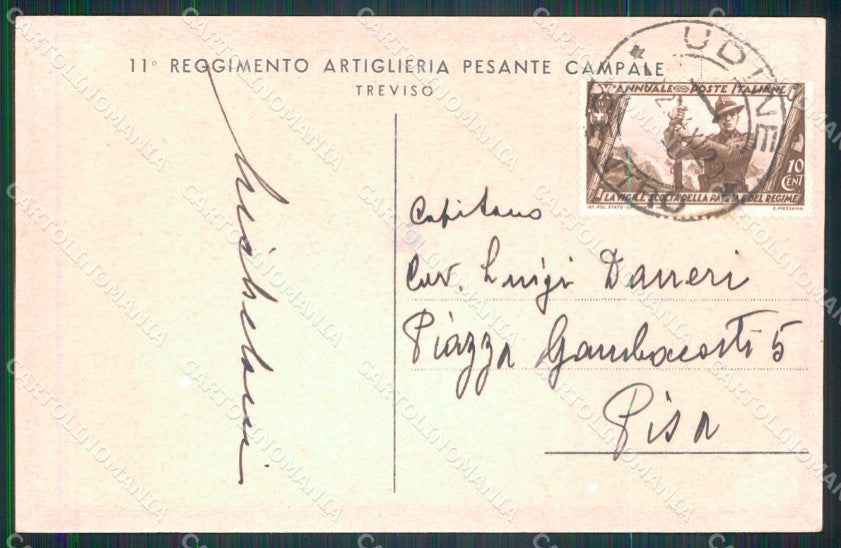 11º REGGIMENTO ARTIGLIERIA PESANTE CAMPALE
TREVISO
UDINE
ANNUALE POSTE ITALIANE
10
CENT
LA VIGILE SCOLTA DELLA PATRIA E DEL REGIME
IST. POL. STATO
C. MEZZANA
Capitano
Cav. Luigi Danneri
Piazza Gambacorti 5
Pisa
CARTOLINOMANIA